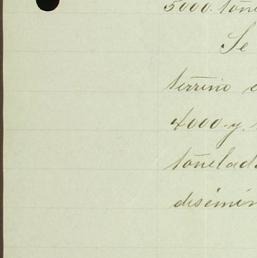 5000 tone
Se
terreno e
4000 y
tonelad
disemin